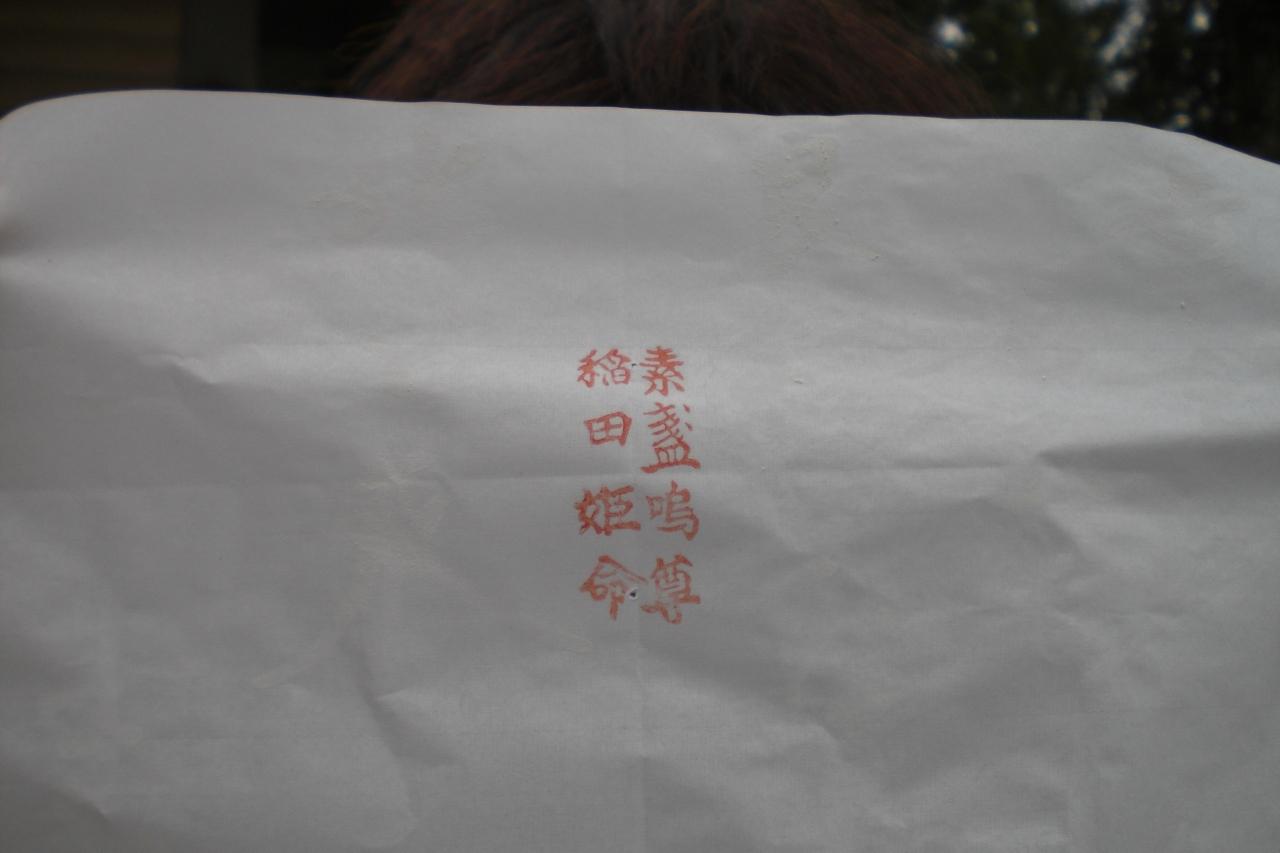 素盞嗚尊
稲田姫命